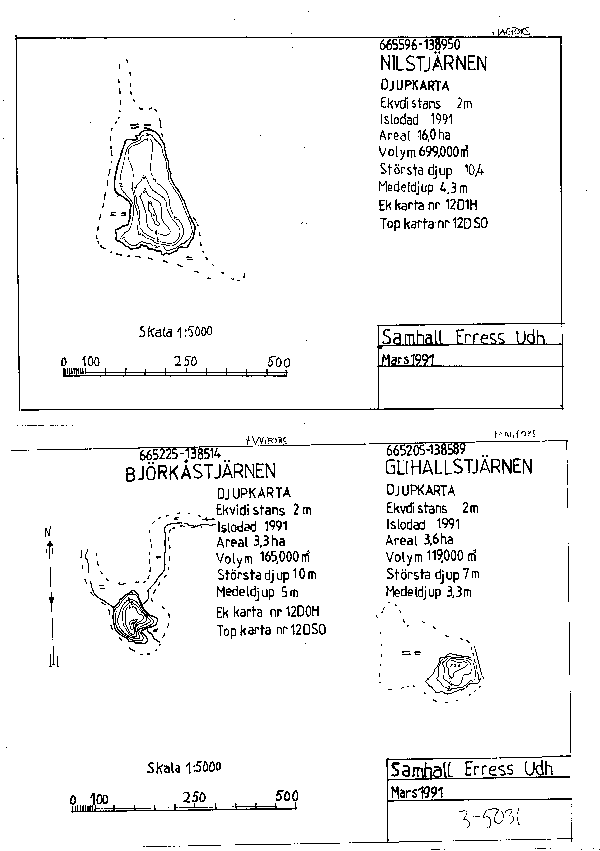 665596-138950
NILSTJÄRNEN
DJUPKARTA
Ekvdistans 2m
Islodad 1991
Areal 16,0 ha
Volym 699,000 m³
Största djup 10,4
Medeldjup 4,3 m
Ek karta nr 12D1H
Top karta nr 12DSO
Skala 1:5000
0 100 250 500
Samhall Erress Udh
Mars1991
665225-138514
BJÖRKÅSTJÄRNEN
DJUPKARTA
Ekvidistans 2m
Islodad 1991
Areal 3,3 ha
Volym 165,000 m³
Största djup 10 m
Medeldjup 5m
Ek karta nr 12D0H
Top karta nr 12DSO
N
Skala 1:5000
0 100 250 500
665205-138589
DJUPKARTA
Ekvdistans 2m
Islodad 1991
Areal 3,6 ha
Volym 119,000 m³
Största djup 7m
Medeldjup 3,3m
Samhall Erress Udh
Mars1991
3-5031